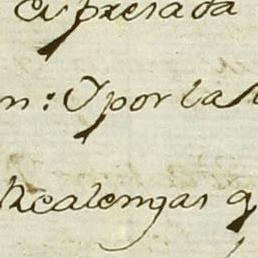 expresada
n: Y por la
Realengas q